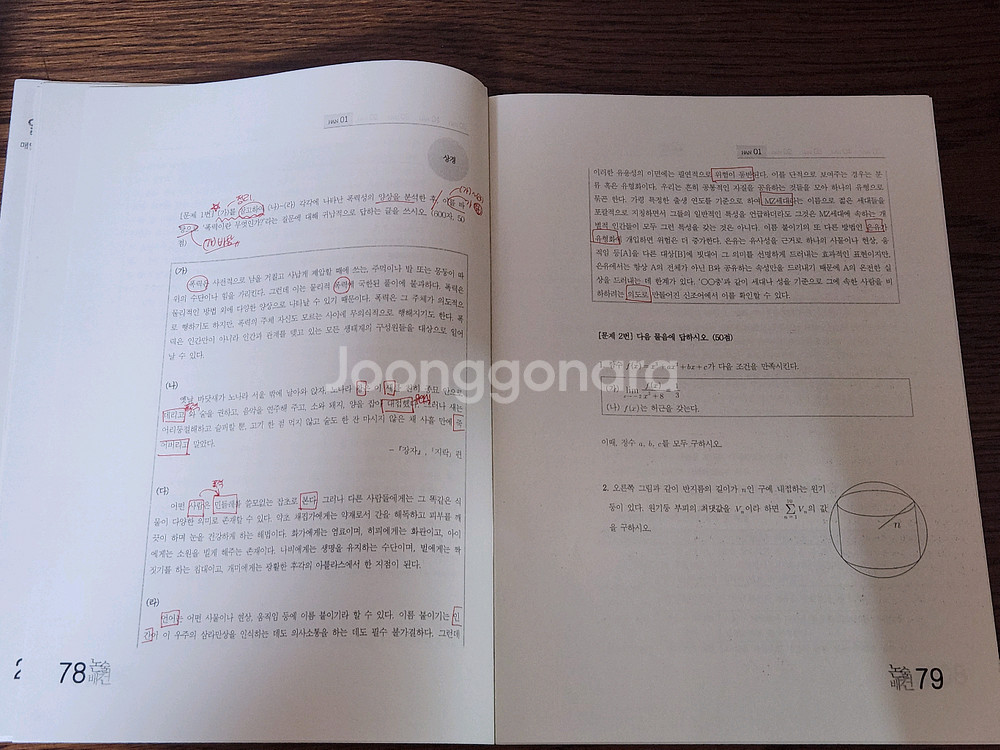 HAN 01
상경
정리
(가)~(라)
[문제 1번] (가)를 참고하여 (나)~(라) 각각에 나타난 폭력성의 양상을 분석한 후,
폭력이란 무엇인가?라는 질문에 대해 귀납적으로 답하는 글을 쓰시오. (600자, 50
점)
(가)
폭력은 사전적으로 남을 거칠고 사납게 제압할 때에 쓰는, 주먹이나 발 또는 몽둥이 따
위의 수단이나 힘을 가리킨다. 그런데 이는 물리적 폭력에 국한된 풀이에 불과하다. 폭력은
물리적인 방법 외에 다양한 양상으로 나타날 수 있기 때문이다. 폭력은 그 주체가 의도적으
로 행하기도 하지만, 폭력의 주체 자신도 모르는 사이에 무의식적으로 행해지기도 한다. 폭
력은 인간만이 아니라 인간과 관계를 맺고 있는 모든 생태계의 구성원들을 대상으로 일어
날 수 있다.
(나)
옛날 바닷새가 노나라 서울 밖에 날아와 앉자, 노나라
데려와 술을 권하고, 음악을 연주해 주고, 소와 돼지, 양을 잡아 대접했다. 그러나 새는
어리둥절해하고 슬퍼할 뿐, 고기 한 점 먹지 않고 술도 한 잔 마시지 않은 채 사흘 만에 죽
어버리고 말았다.
- 『장자』, 「지락」 편
(다)
폭력
어떤 사람은 민들레를 쓸모없는 잡초로 본다. 그러나 다른 사람들에게는 그 똑같은 식
물이 다양한 의미로 존재할 수 있다. 약초 채집가에게는 약재로서 간을 해독하고 피부를 깨
끗이 하며 눈을 건강하게 하는 해법이다. 화가에게는 염료이며, 히피에게는 화관이고, 아이
에게는 소원을 빌게 해주는 존재이다. 나비에게는 생명을 유지하는 수단이며, 벌에게는 짝
짓기를 하는 침대이고, 개미에게는 광활한 후각의 아틀라스에서 한 지점이 된다.
(라)
언어는 어떤 사물이나 현상, 움직임 등에 이름 붙이기라 할 수 있다. 이름 붙이기는 인
간이 이 우주의 삼라만상을 인식하는 데도 의사소통을 하는 데도 필수 불가결하다. 그런데
78
HAN 01
이러한 유용성의 이면에는 필연적으로 위험이 동반된다. 이를 단적으로 보여주는 경우는 분
류 혹은 유형화이다. 우리는 흔히 공통적인 자질을 공유하는 것들을 모아 하나의 유형으로
묶곤 한다. 가령 특정한 출생 연도를 기준으로 하여 MZ세대라는 이름으로 젊은 세대들을
포괄적으로 지칭하면서 그들의 일반적인 특성을 언급하더라도 그것은 MZ세대에 속하는 개
별적 인간들이 모두 그런 특성을 갖는 것은 아니다. 이름 붙이기의 또 다른 방법인 은유가
유형화에 개입하면 위험은 더 증가한다. 은유는 유사성을 근거로 하나의 사물이나 현상, 움
직임 등[A]을 다른 대상[B]에 빗대어 그 의미를 선명하게 드러내는 효과적인 표현이지만,
은유에서는 항상 A의 전체가 아닌 B와 공유하는 속성만을 드러내기 때문에 A의 온전한 실
상을 드러내는 데 한계가 있다. '○○충'과 같이 세대나 성을 기준으로 그에 속한 사람을 비
하하려는 의도로 만들어진 신조어에서 이를 확인할 수 있다.
[문제 2번] 다음 물음에 답하시오. (50점)
+bx+c가 다음 조건을 만족시킨다.
(나) f(x)는 허근을 갖는다.
이때, 정수 a, b, c를 모두 구하시오.
2. 오른쪽 그림과 같이 반지름의 길이가 n인 구에 내접하는 원기
둥이 있다. 원기둥 부피의 최댓값을 Vₙ이라 하면 ∑Vₙ의 값
을 구하시오.
n
79
Joonggonara